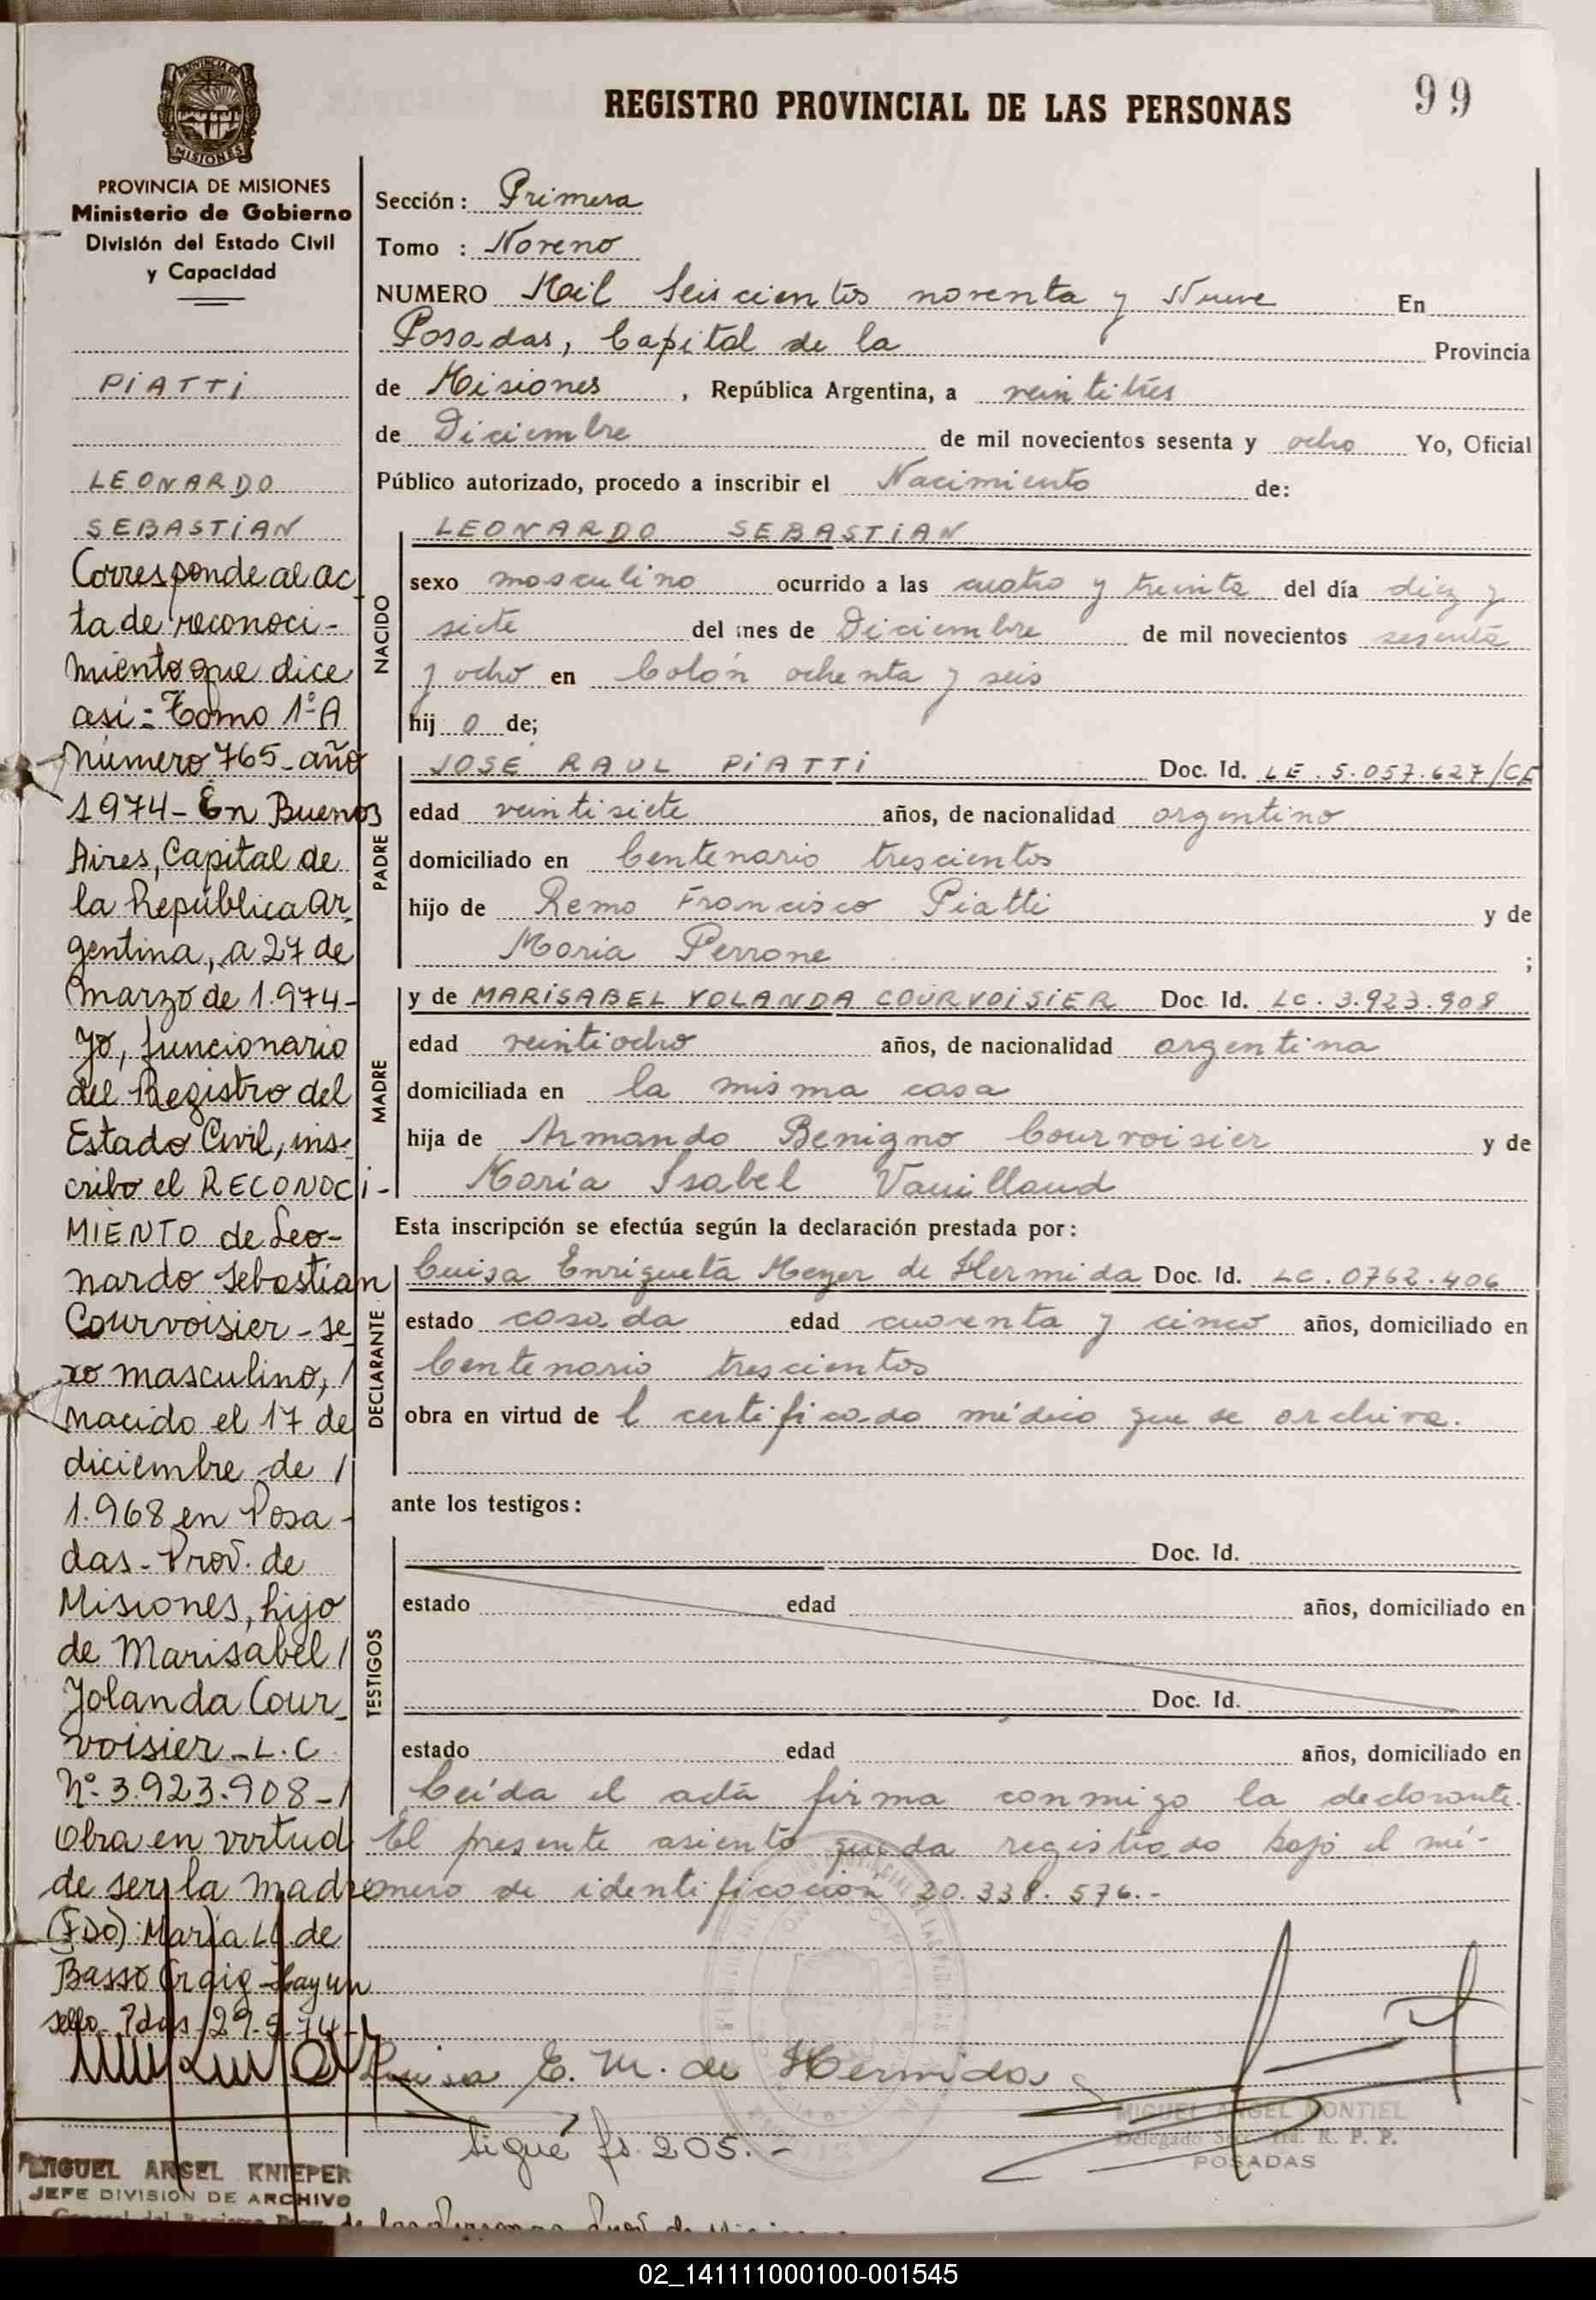 PROVINCIA DE
MISIONES
PROVINCIA DE MISIONES
Ministerio de Gobierno
División del Estado Civil
y Capacidad
PIATTI
LEONARDO
SEBASTIAN
Corresponde al ac
ta de reconoci-
miento que dice
asi: Tomo 1º A
número 765-año
1974-En Buenos
Aires, Capital de
la República Ar
gentina, a 27 de
marzo de 1.974-
Yo, funcionario
del Registro del
Estado Civil, ins-
cribo el RECONOCI-
MIENTO de Leo-
nardo Sebastian
Courvoisier-se
xo masculino, /
nacido el 17 de
diciembre de /
1.968 en Posa-
das-Prov. de
Misiones, hijo
de Marisabel /
Yolanda Cour
voisier-L.C
Nº 3.923.908-/
Obra en virtud
de ser la madre
(FDO): María L. de
Basso Hay un
sello-
MIGUEL ANGEL KNIEPER
JEFE DIVISION DE ARCHIVO
REGISTRO PROVINCIAL DE LAS PERSONAS
99
Sección: Primera
Tomo : Noveno
NUMERO Mil Seiscientos noventa y Nueve En
Posadas, Capital de la Provincia
de Misiones , República Argentina, a veintitrés
de Diciembre de mil novecientos sesenta y ocho Yo, Oficial
Público autorizado, procedo a inscribir el Nacimiento de:
NACIDO
LEONARDO SEBASTIAN
sexo masculino ocurrido a las cuatro y treinta del día diez y
siete del mes de Diciembre de mil novecientos sesenta
y ocho en Colón ochenta y seis
hij o de;
PADRE
JOSÉ RAUL PIATTI Doc. Id. LE. 5.057.627/CF
edad veintisiete años, de nacionalidad argentino
domiciliado en Centenario trescientos
hijo de Remo Francisco Piatti y de
Maria Perrone ;
MADRE
y de MARISABEL YOLANDA COURVOISIER Doc. Id. LC. 3.923.908
edad veintiocho años, de nacionalidad argentina
domiciliada en la misma casa
hija de Armando Benigno Courvoisier y de
María Isabel Vauilloud
Esta inscripción se efectúa según la declaración prestada por:
DECLARANTE
Luisa Enriqueta Meyer de Hermida Doc. Id. LC. 0762.406
estado casada edad cuarenta y cinco años, domiciliado en
Centenario trescientos
obra en virtud de l certificado médico que se archiva.
ante los testigos:
TESTIGOS
Doc. Id.
estado edad años, domiciliado en
Doc. Id.
estado edad años, domiciliado en
Leída el acta firma conmigo la declarante.
El presente asiento queda registrado bajo el nú-
mero de identificación 20.338.576.-
Luisa E. M. de Hermida
Sigue fs. 205.-
MIGUEL ANGEL MONTIEL
Delegado R. P. P.
POSADAS
02_141111000100-001545